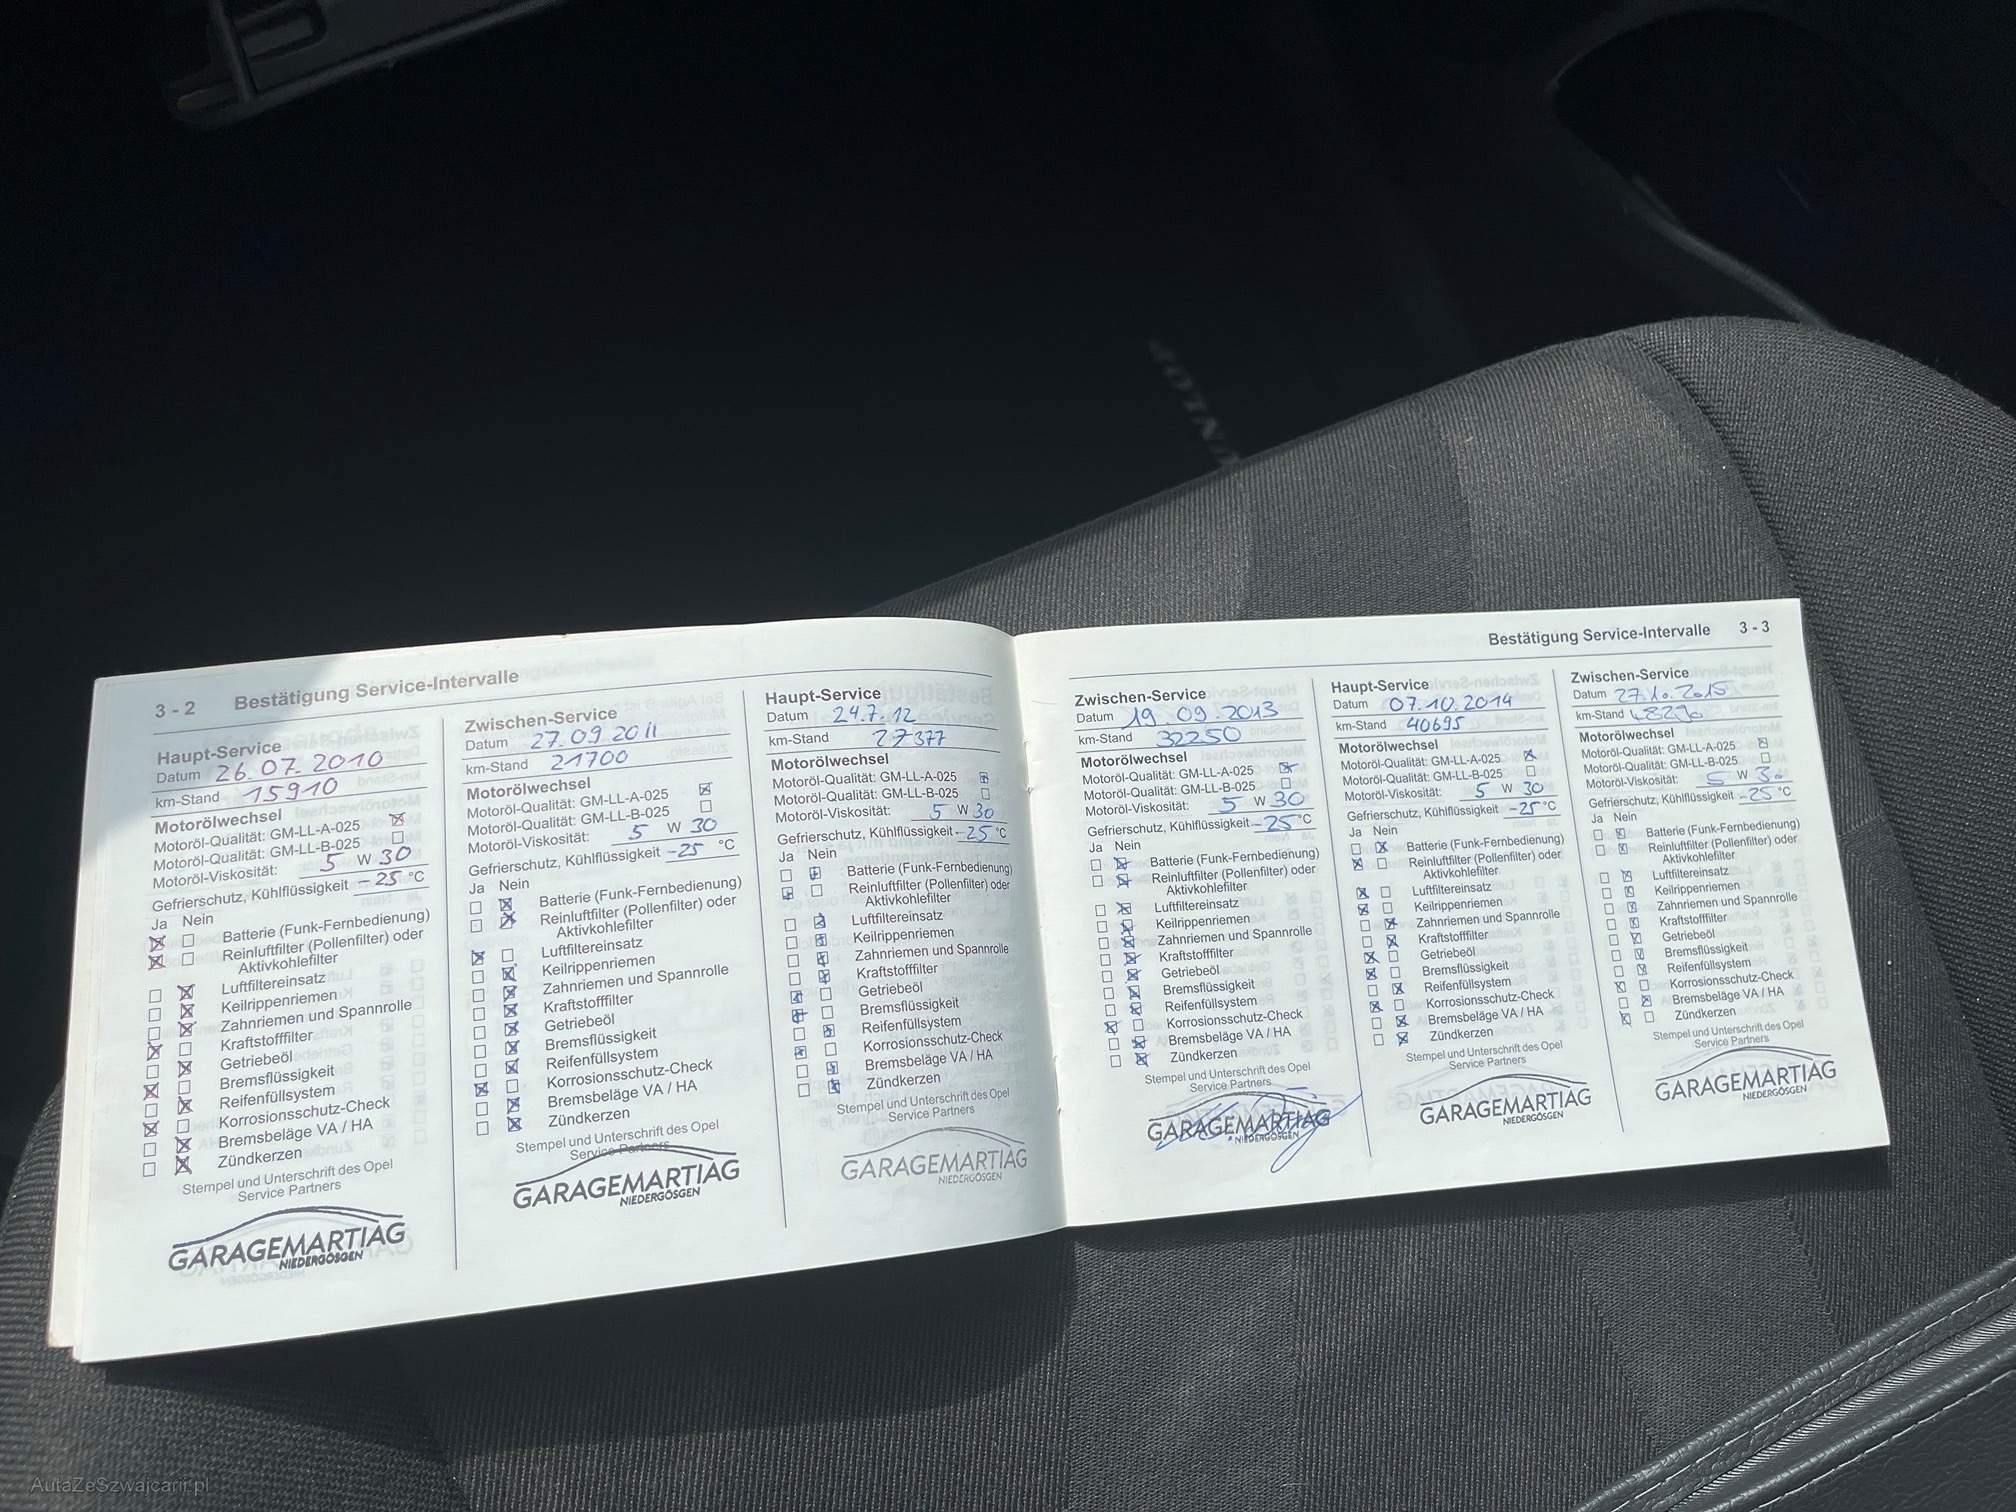 3 - 2 Bestätigung Service-Intervalle
Haupt-Service
Datum 26.07.2010
km-Stand 15910
Motorölwechsel
Motoröl-Qualität: GM-LL-A-025
Motoröl-Qualität: GM-LL-B-025
Motoröl-Viskosität: 5 W 30
Gefrierschutz, Kühlflüssigkeit -25 °C
Ja Nein
Batterie (Funk-Fernbedienung)
Reinluftfilter (Pollenfilter) oder
Aktivkohlefilter
Luftfiltereinsatz
Keilrippenriemen
Zahnriemen und Spannrolle
Kraftstofffilter
Getriebeöl
Bremsflüssigkeit
Reifenfüllsystem
Korrosionsschutz-Check
Bremsbeläge VA / HA
Zündkerzen
Stempel und Unterschrift des Opel
Service Partners
GARAGEMARTIAG
NIEDERGÖSGEN
Zwischen-Service
Datum 27.09 2011
km-Stand 21700
Motorölwechsel
Motoröl-Qualität: GM-LL-A-025
Motoröl-Qualität: GM-LL-B-025
Motoröl-Viskosität: 5 W 30
Gefrierschutz, Kühlflüssigkeit -25 °C
Ja Nein
Batterie (Funk-Fernbedienung)
Reinluftfilter (Pollenfilter) oder
Aktivkohlefilter
Luftfiltereinsatz
Keilrippenriemen
Zahnriemen und Spannrolle
Kraftstofffilter
Getriebeöl
Bremsflüssigkeit
Reifenfüllsystem
Korrosionsschutz-Check
Bremsbeläge VA / HA
Zündkerzen
Stempel und Unterschrift des Opel
Service Partners
GARAGEMARTIAG
NIEDERGÖSGEN
Haupt-Service
Datum 24.7.12
km-Stand 27377
Motorölwechsel
Motoröl-Qualität: GM-LL-A-025
Motoröl-Qualität: GM-LL-B-025
Motoröl-Viskosität: 5 W 30
Gefrierschutz, Kühlflüssigkeit -25 °C
Ja Nein
Batterie (Funk-Fernbedienung)
Reinluftfilter (Pollenfilter) oder
Aktivkohlefilter
Luftfiltereinsatz
Keilrippenriemen
Zahnriemen und Spannrolle
Kraftstofffilter
Getriebeöl
Bremsflüssigkeit
Reifenfüllsystem
Korrosionsschutz-Check
Bremsbeläge VA / HA
Zündkerzen
Stempel und Unterschrift des Opel
Service Partners
GARAGEMARTIAG
NIEDERGÖSGEN
Bestätigung Service-Intervalle 3 - 3
Zwischen-Service
Datum 19.09.2013
km-Stand 32250
Motorölwechsel
Motoröl-Qualität: GM-LL-A-025
Motoröl-Qualität: GM-LL-B-025
Motoröl-Viskosität: 5 W 30
Gefrierschutz, Kühlflüssigkeit -25 °C
Ja Nein
Batterie (Funk-Fernbedienung)
Reinluftfilter (Pollenfilter) oder
Aktivkohlefilter
Luftfiltereinsatz
Keilrippenriemen
Zahnriemen und Spannrolle
Kraftstofffilter
Getriebeöl
Bremsflüssigkeit
Reifenfüllsystem
Korrosionsschutz-Check
Bremsbeläge VA / HA
Zündkerzen
Stempel und Unterschrift des Opel
Service Partners
GARAGEMARTIAG
NIEDERGÖSGEN
Haupt-Service
Datum 07.10.2014
km-Stand 40695
Motorölwechsel
Motoröl-Qualität: GM-LL-A-025
Motoröl-Qualität: GM-LL-B-025
Motoröl-Viskosität: 5 W 30
Gefrierschutz, Kühlflüssigkeit -25 °C
Ja Nein
Batterie (Funk-Fernbedienung)
Reinluftfilter (Pollenfilter) oder
Aktivkohlefilter
Luftfiltereinsatz
Keilrippenriemen
Zahnriemen und Spannrolle
Kraftstofffilter
Getriebeöl
Bremsflüssigkeit
Reifenfüllsystem
Korrosionsschutz-Check
Bremsbeläge VA / HA
Zündkerzen
Stempel und Unterschrift des Opel
Service Partners
GARAGEMARTIAG
NIEDERGÖSGEN
Zwischen-Service
Datum 27.10.2015
km-Stand 48290
Motorölwechsel
Motoröl-Qualität: GM-LL-A-025
Motoröl-Qualität: GM-LL-B-025
Motoröl-Viskosität: 5 W 30
Gefrierschutz, Kühlflüssigkeit -25 °C
Ja Nein
Batterie (Funk-Fernbedienung)
Reinluftfilter (Pollenfilter) oder
Aktivkohlefilter
Luftfiltereinsatz
Keilrippenriemen
Zahnriemen und Spannrolle
Kraftstofffilter
Getriebeöl
Bremsflüssigkeit
Reifenfüllsystem
Korrosionsschutz-Check
Bremsbeläge VA / HA
Zündkerzen
Stempel und Unterschrift des Opel
Service Partners
GARAGEMARTIAG
NIEDERGÖSGEN
AutaZeSzwajcarii.pl